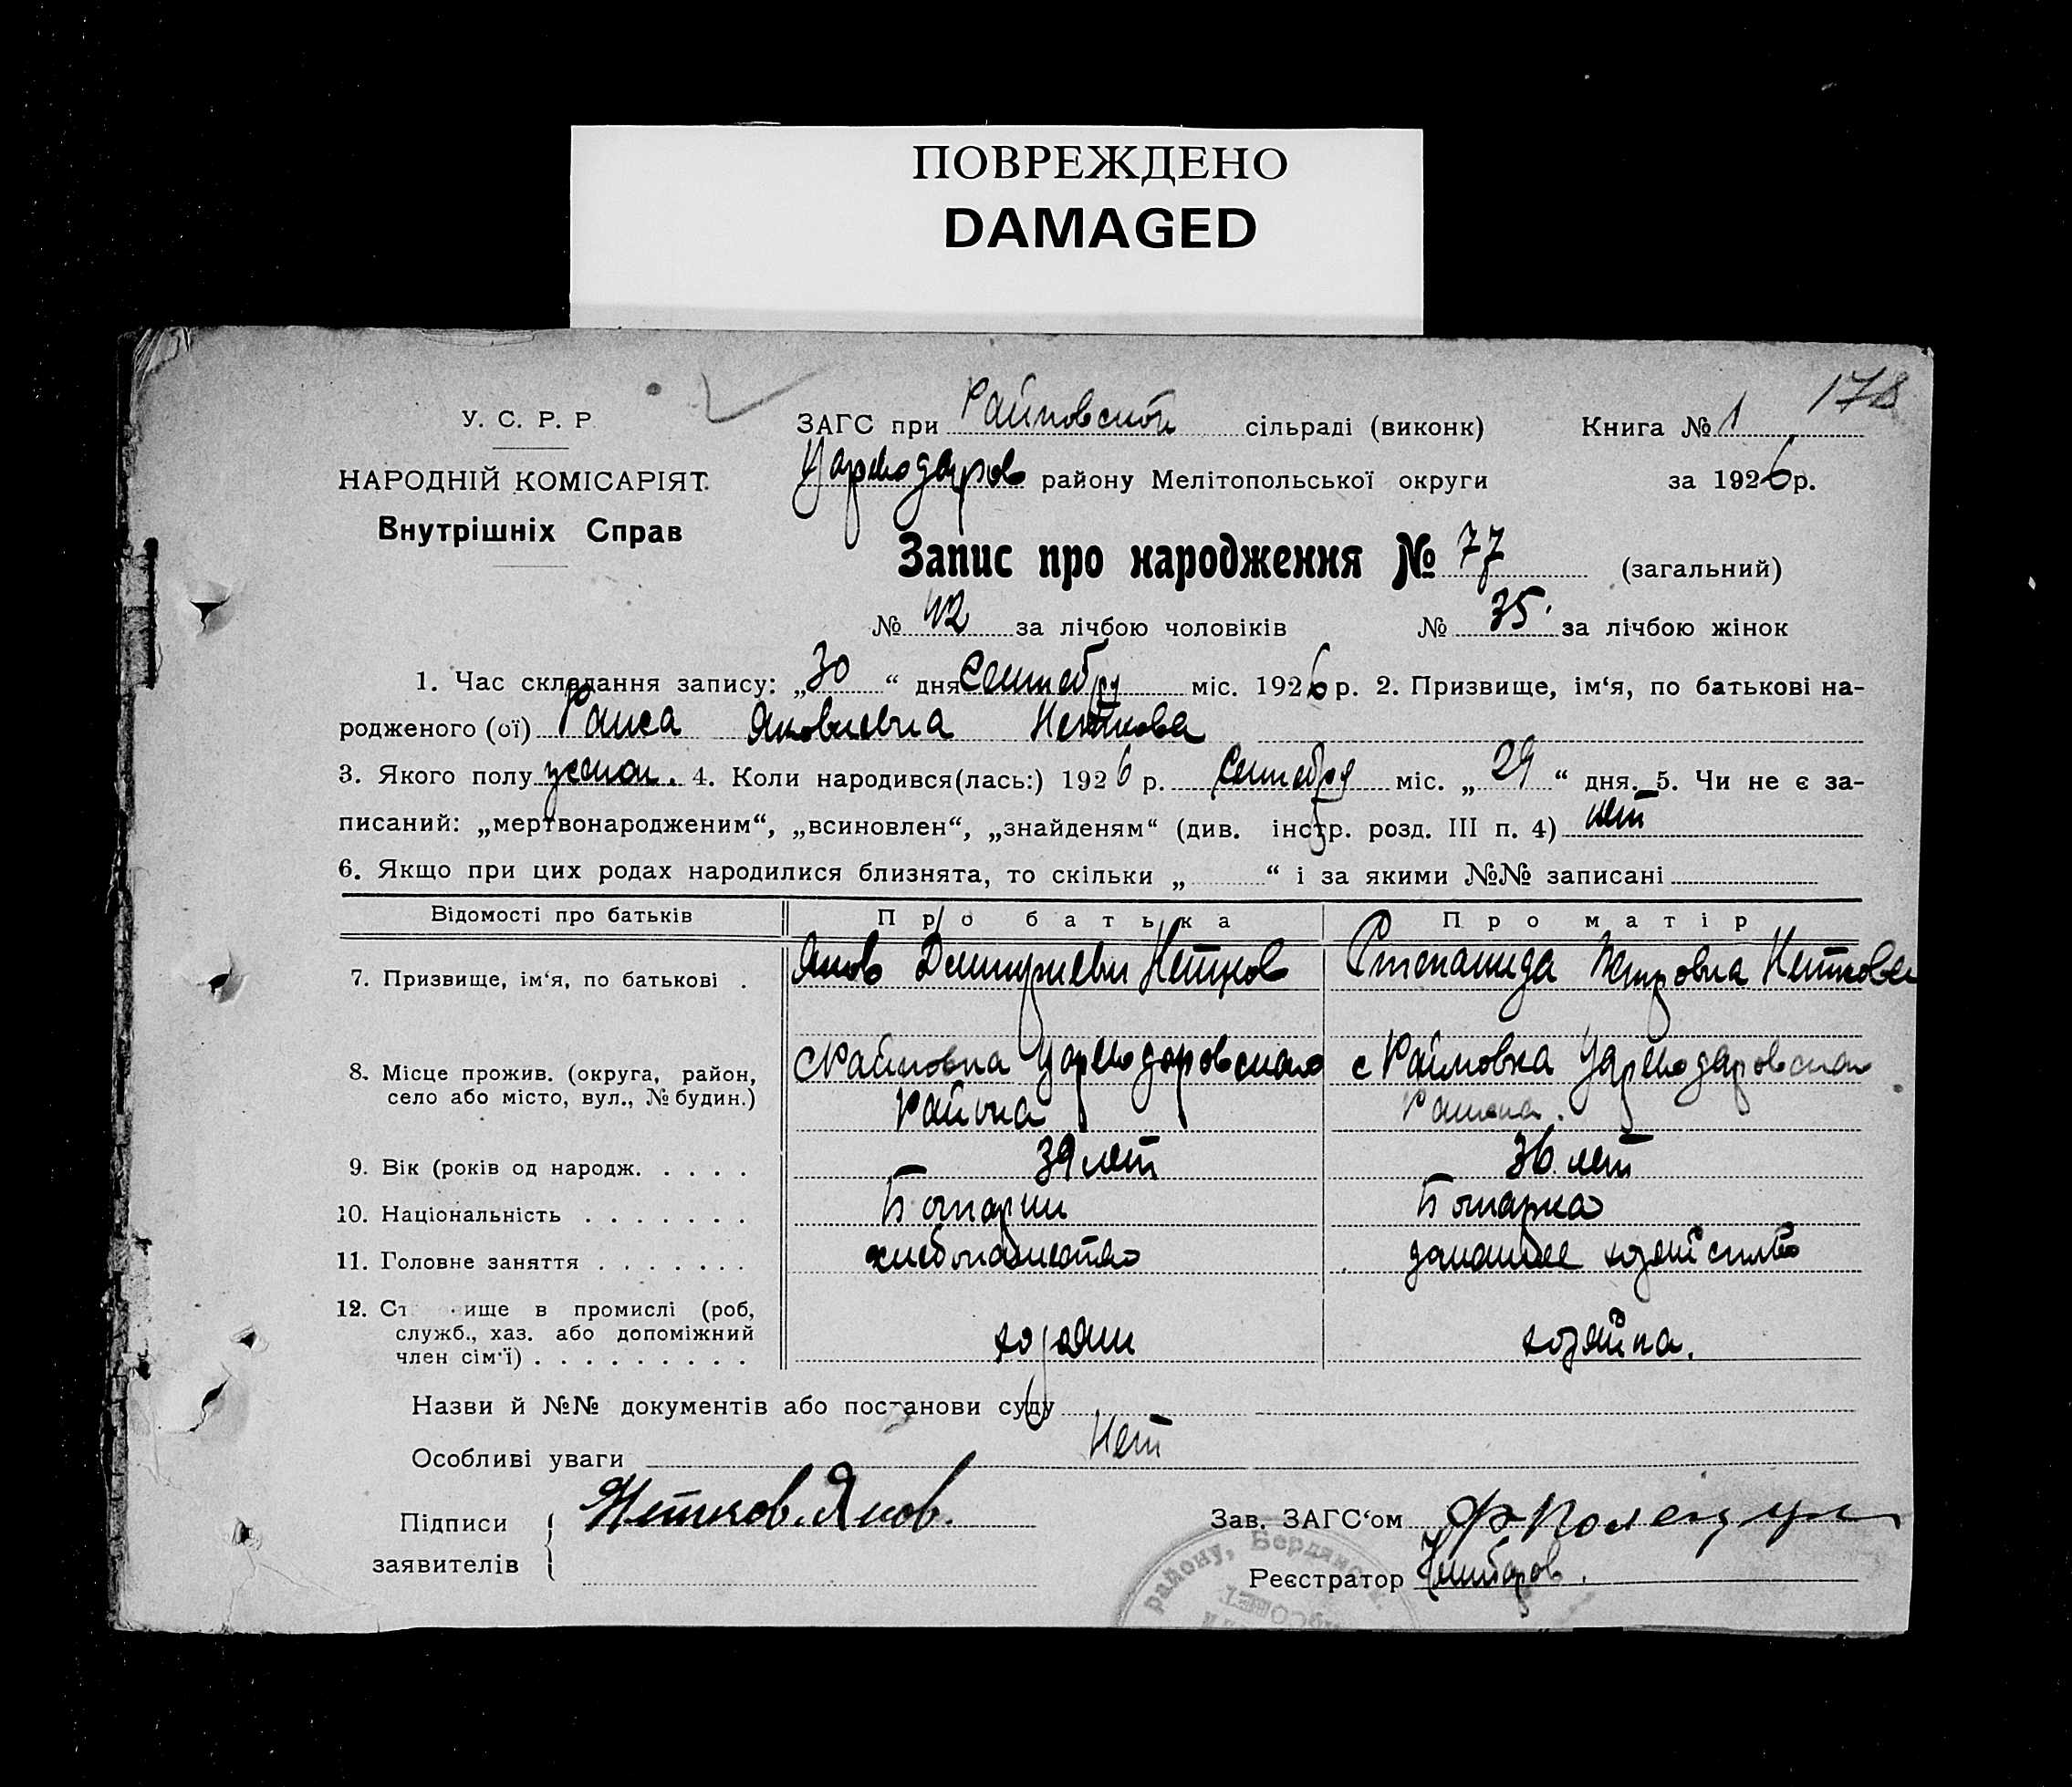 ПОВРЕЖДЕНО
DAMAGED
178
У. С. Р. Р
НАРОДНІЙ КОМІСАРІЯТ.
Внутрішніх Справ
ЗАГС при Райновской сільраді (виконк) Книга № 1
Цареводаров району Мелітопольської округи за 1926 р.
Запис про народження № 77 (загальний)
№ 42 за лічбою чоловіків № 35 за лічбою жінок
1. Час складання запису: „30“ дня Сентября міс. 1926 р. 2. Призвище, ім‘я, по батькові на-
родженого (ої) Раиса Яковлевна Неткова
3. Якого полу женск. 4. Коли народився(лась:) 1926 р. Сентября міс. „29“ дня. 5. Чи не є за-
писаний: „мертвонародженим“, „всиновлен“, „знайденям“ (див. інстр. розд. III п. 4) нет
6. Якщо при цих родах народилися близнята, то скільки „ “ і за якими №№ записані
Відомості про батьків Про батька Про матір
7. Призвище, ім‘я, по батькові . Яков Дмитриевич Нетков Степанида Петровна Неткова
8. Місце прожив. (округа, район, село або місто, вул., № будин.) с Райновка Цареводаровского района с Райновка Цареводаровского района.
9. Вік (років од народж. . . . . 39 лет 36 лет
10. Національність . . . . . . . Болгарин Болгарка
11. Головне заняття . . . . . . . хлебопашество домашнее хозяйство
12. Ст ище в промислі (роб, служб., хаз. або допоміжний член сім‘ї) . . . . . . . . . хозяин хозяйка.
Назви й №№ документів або постанови суду
Особливі уваги Нет
Підписи заявителів Нетков. Яков.
Зав. ЗАГС‘ом
Реєстратор
району, Бердянс